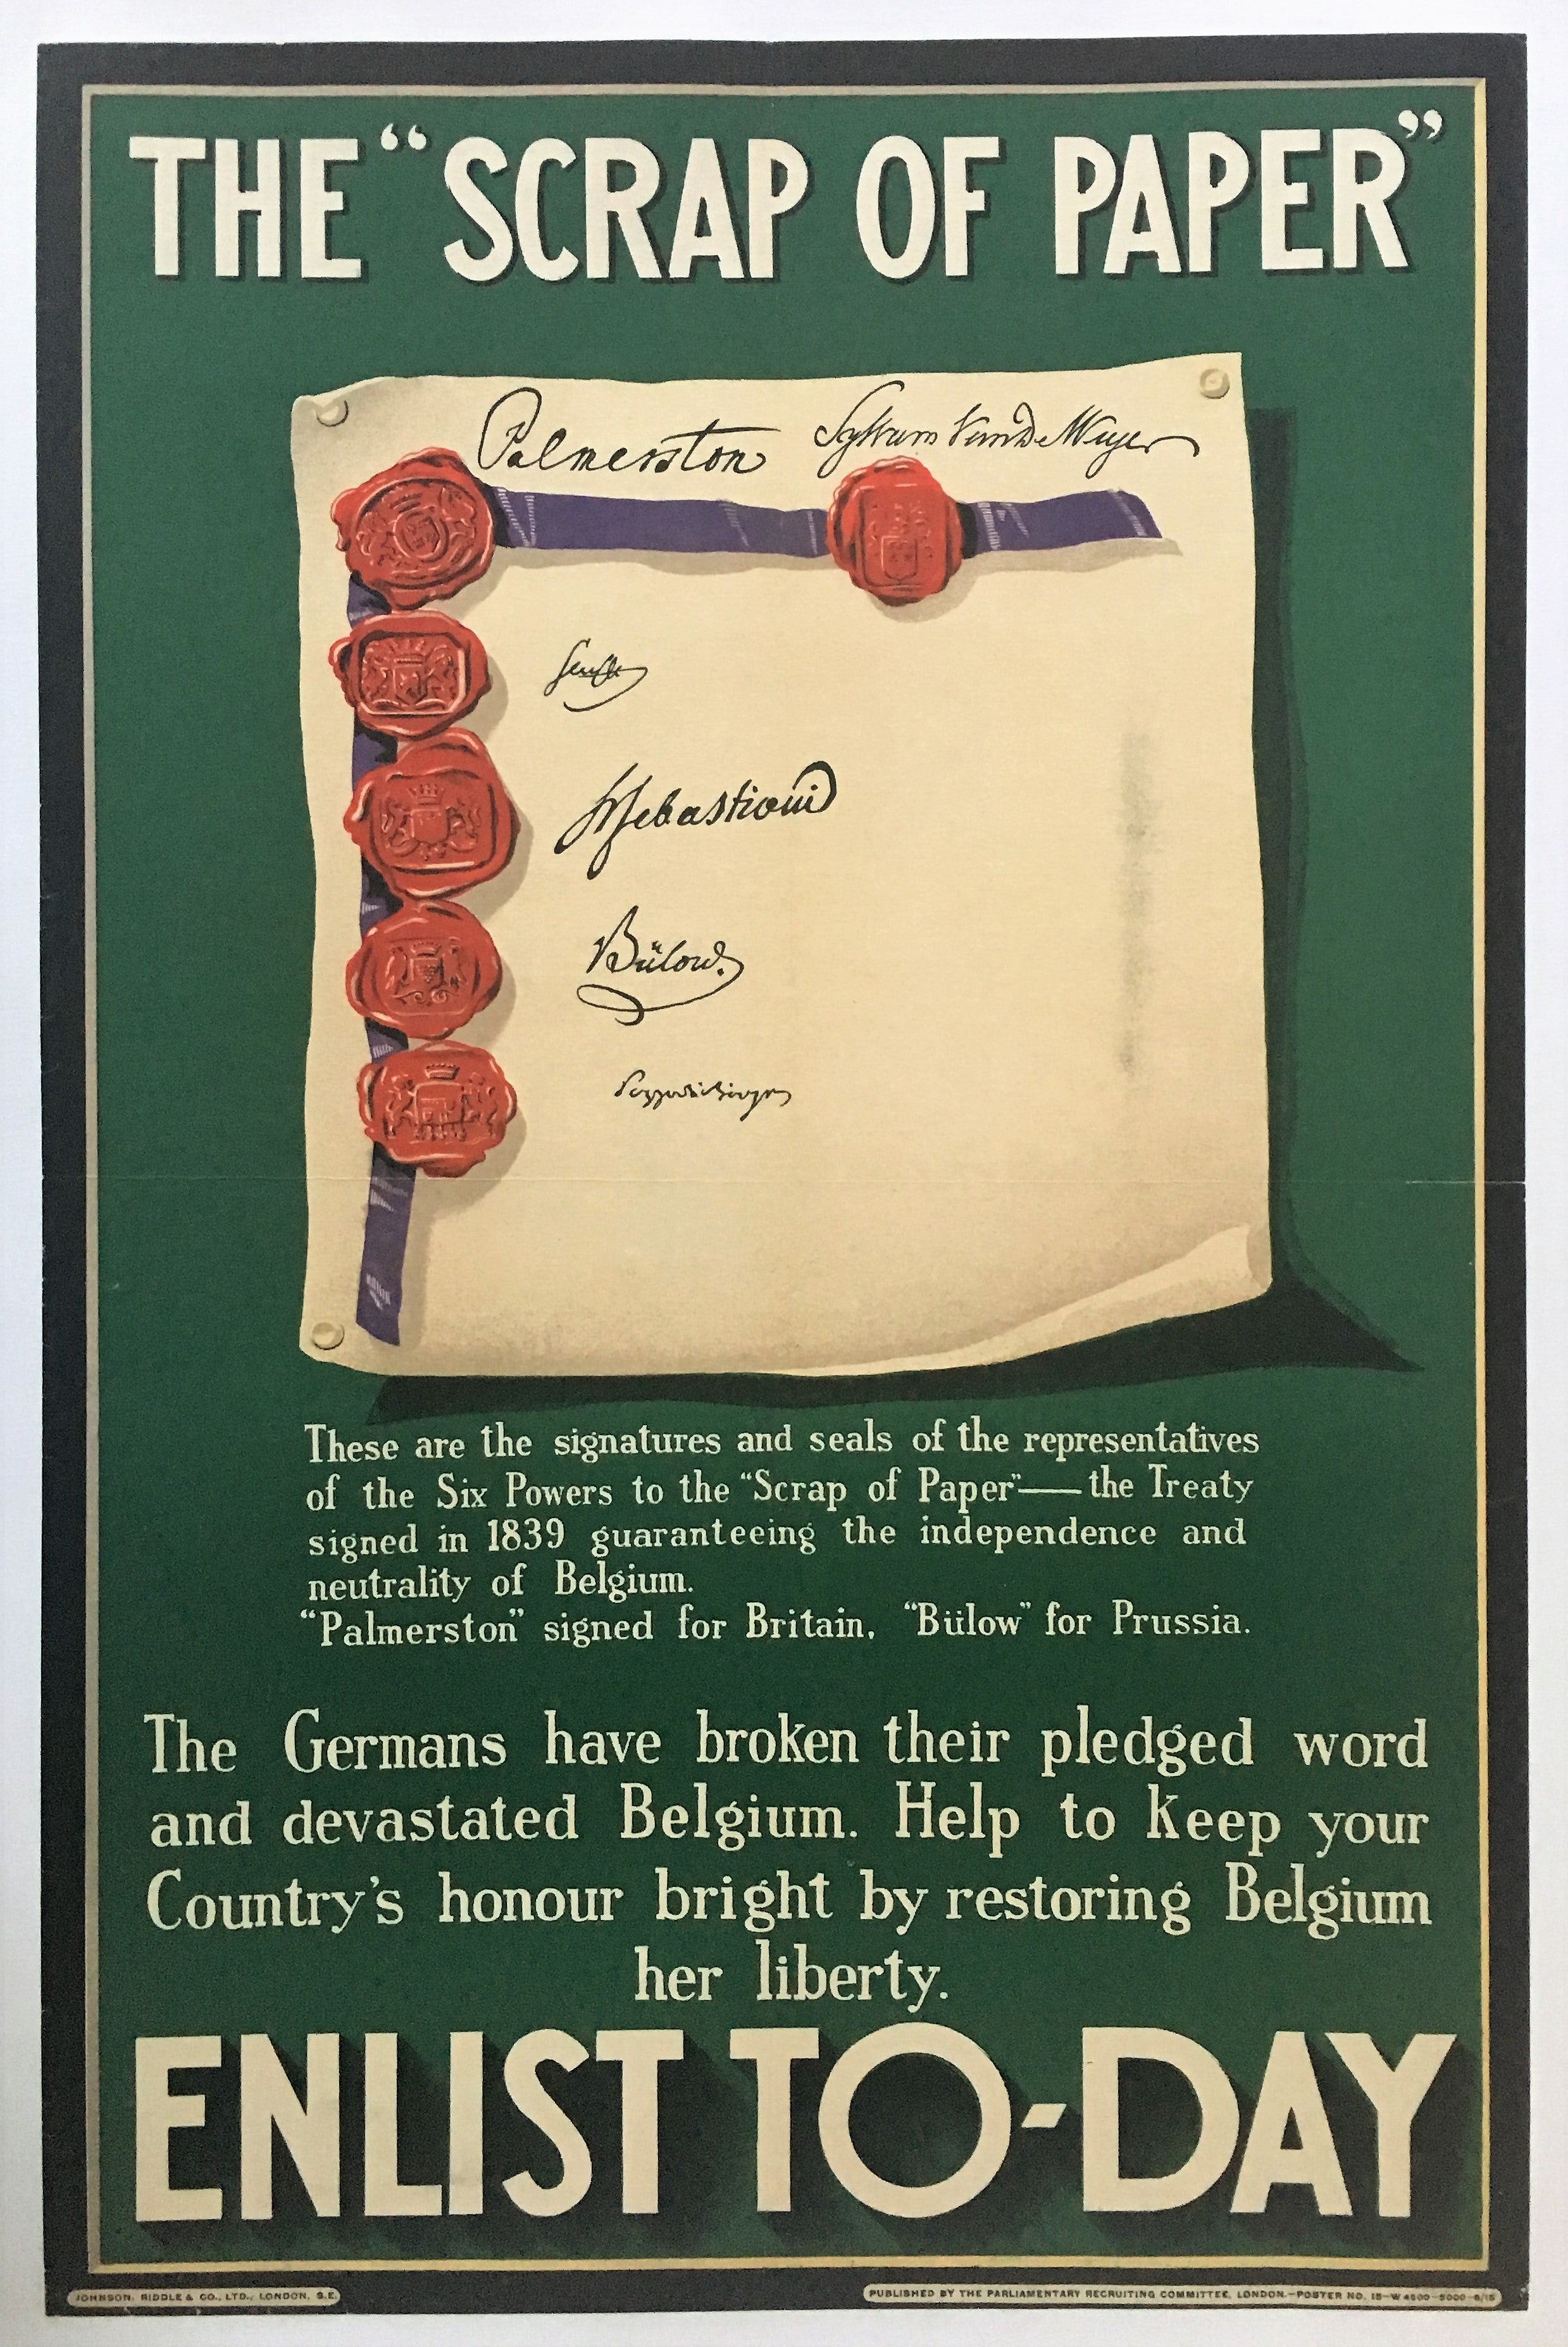 THE “SCRAP OF PAPER”
Palmerston Sylvain Van de Weyer
Senfft
H Sebastiani
Bülow.
Pozzo di Borgo
These are the signatures and seals of the representatives
of the Six Powers to the “Scrap of Paper”—the Treaty
signed in 1839 guaranteeing the independence and
neutrality of Belgium.
“Palmerston” signed for Britain, “Bülow” for Prussia.
The Germans have broken their pledged word
and devastated Belgium. Help to keep your
Country’s honour bright by restoring Belgium
her liberty.
ENLIST TO-DAY
JOHNSON, RIDDLE & CO., LTD., LONDON, S.E.
PUBLISHED BY THE PARLIAMENTARY RECRUITING COMMITTEE, LONDON.—POSTER NO. 15—W 4500—5000—6/15